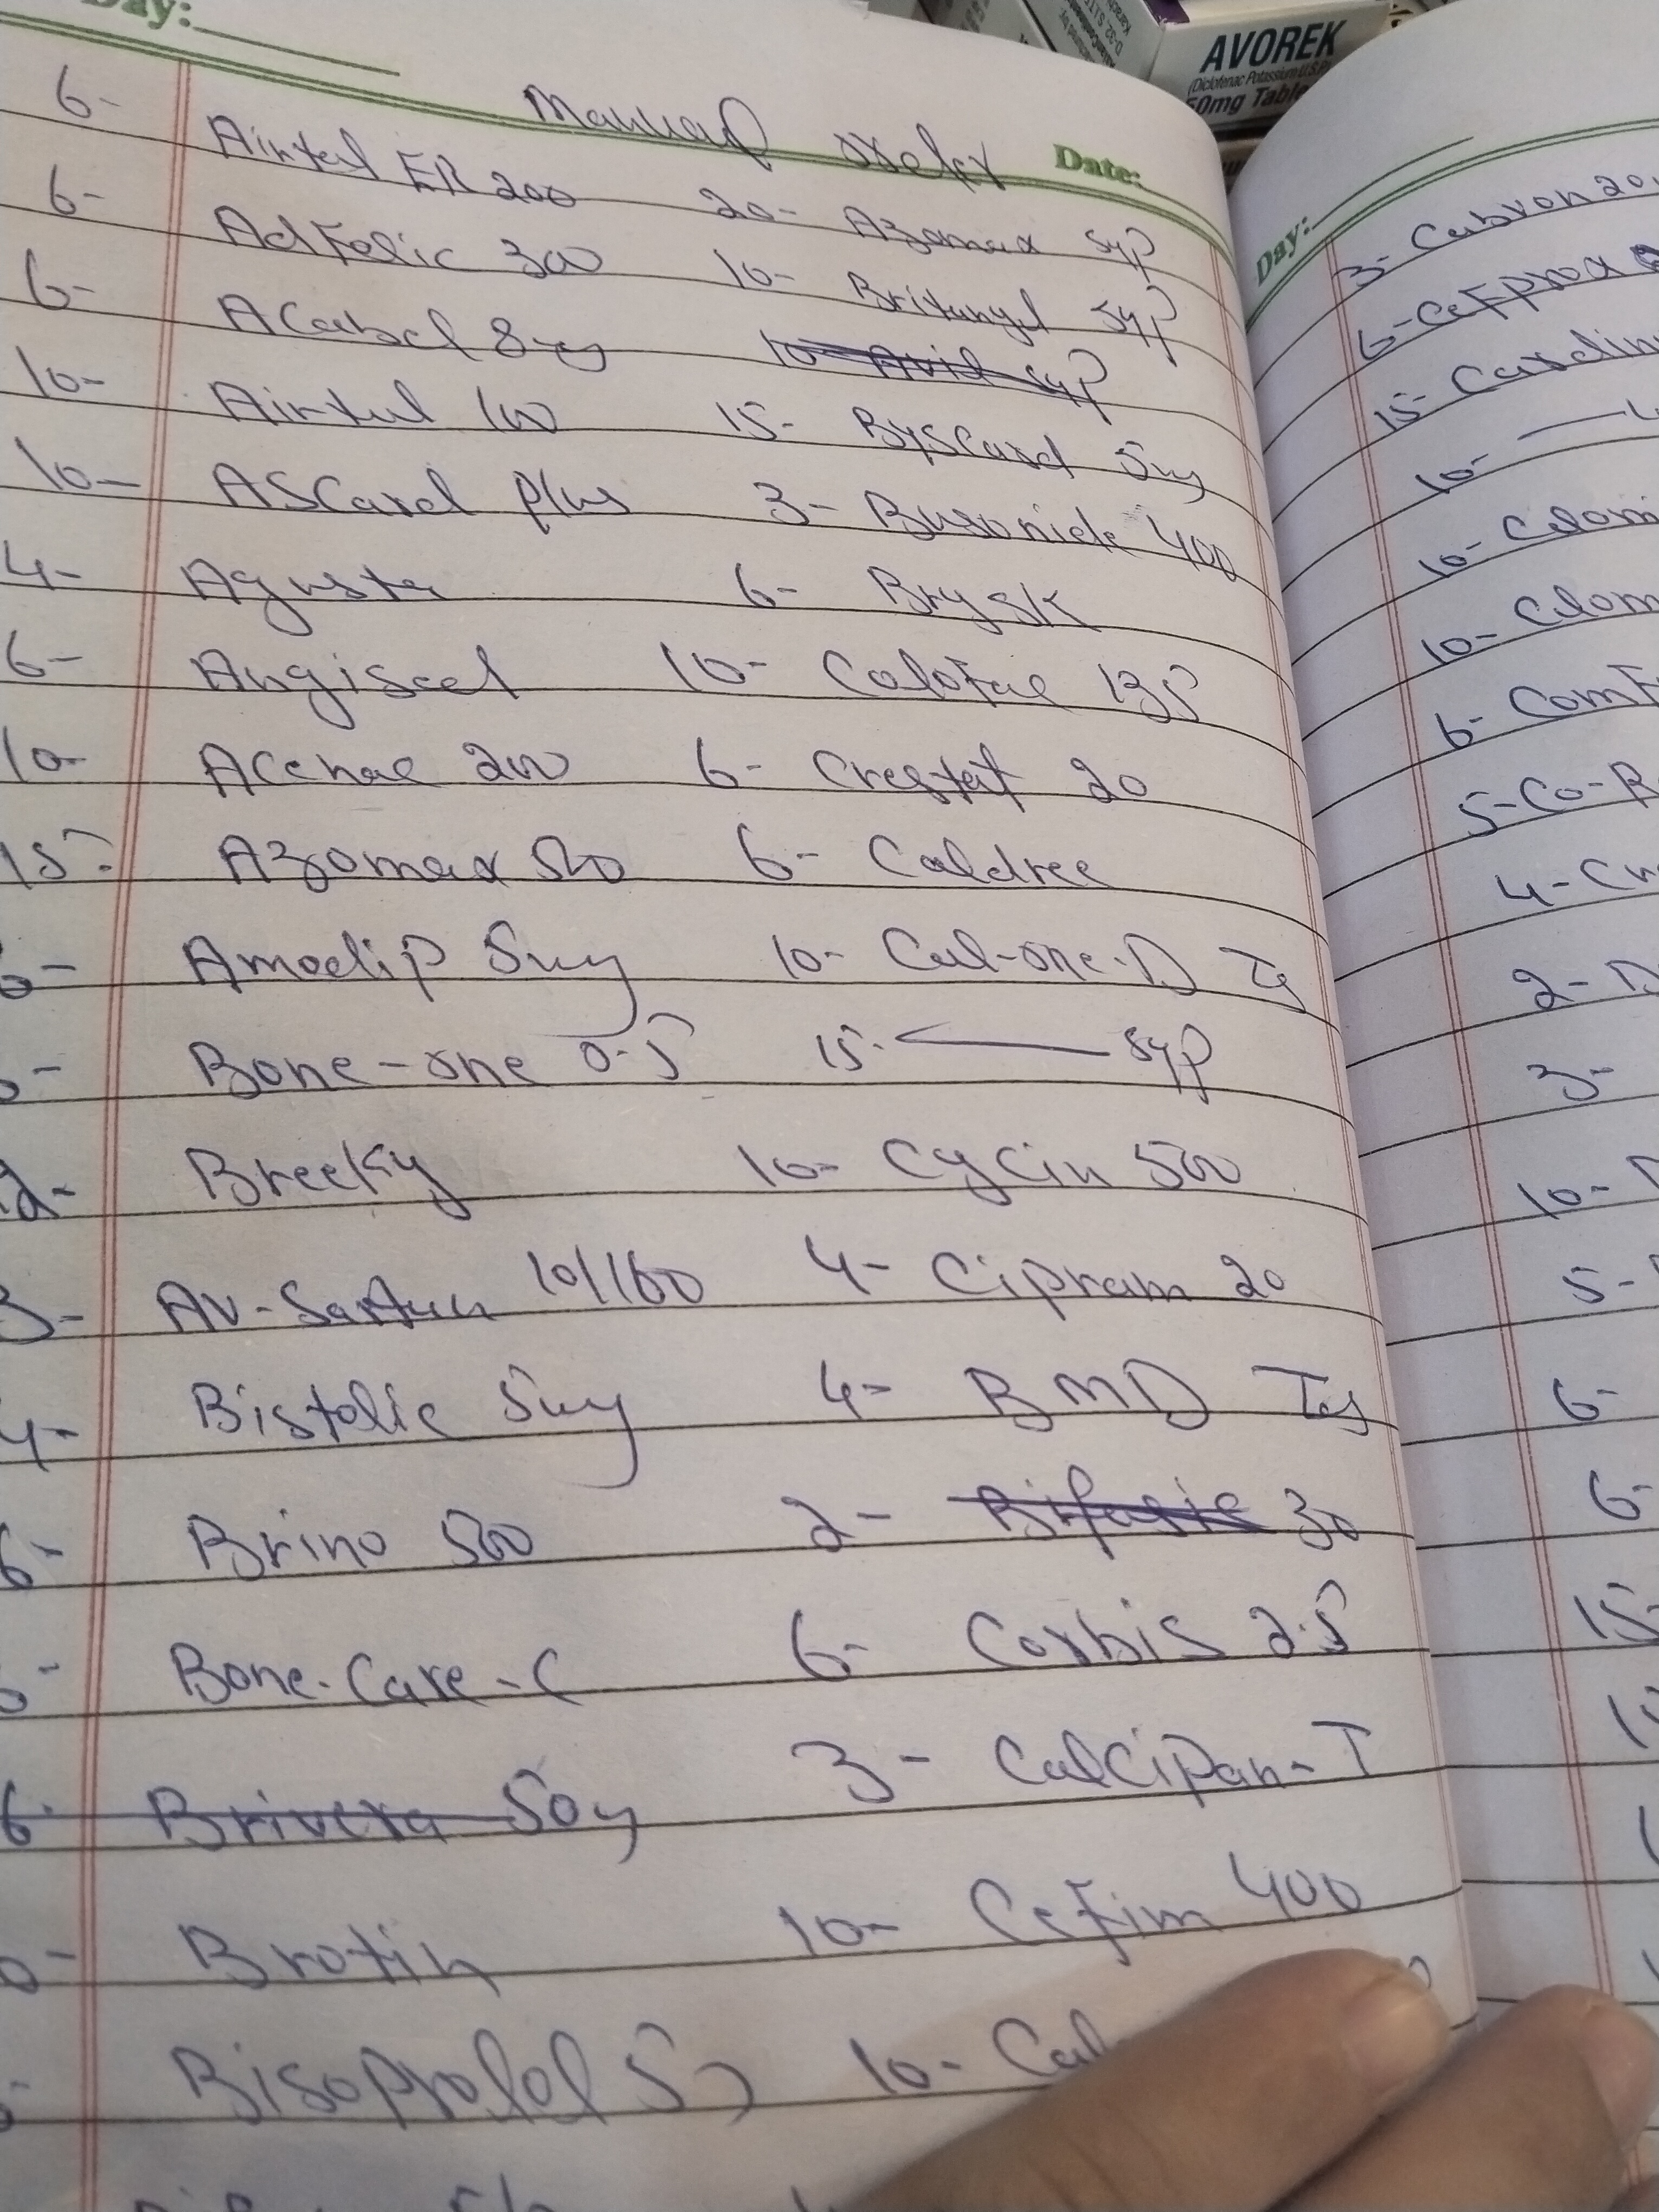 Day:
AVOREK
(Diclofenac Potassium U.S.P)
50mg Table
Manual order
Date:
6- Airtal ER 200
6- AdFolic 300
6- Acabel 8mg
10- Airtal 100
10- AScard plus
4- Agusta
6- Angised
10- Acenac 200
15- Azomax 500
6- Amodip 5mg
Bone-one 0.5
2- Breeky
3- AV-Sartan 10/160
4- Bistolic 5mg
6- Brino 500
Bone-Care-C
6- Brivera 50mg
Brotin
Bisoprolol 5
20- Azomax syp
10- Britanyl syp
10- Avid syp
15- Byscard 5mg
3- Busonide 400
6- Brysk
10- Colofac 135
6- Crestat 20
6- Caldree
10- Cal-one-D Tab
15- syp
10- Cycin 500
4- Cipram 20
4- BMD Tab
2- 30
6- Corbis 2.5
3- CalCipan-T
10- CeFim 400
10- Cal
Day:
3-
6- CeFprox
15-
10-
10-
10-
6-
5- Co-
4-
2-
3-
10-
5-
6-
6-
15-